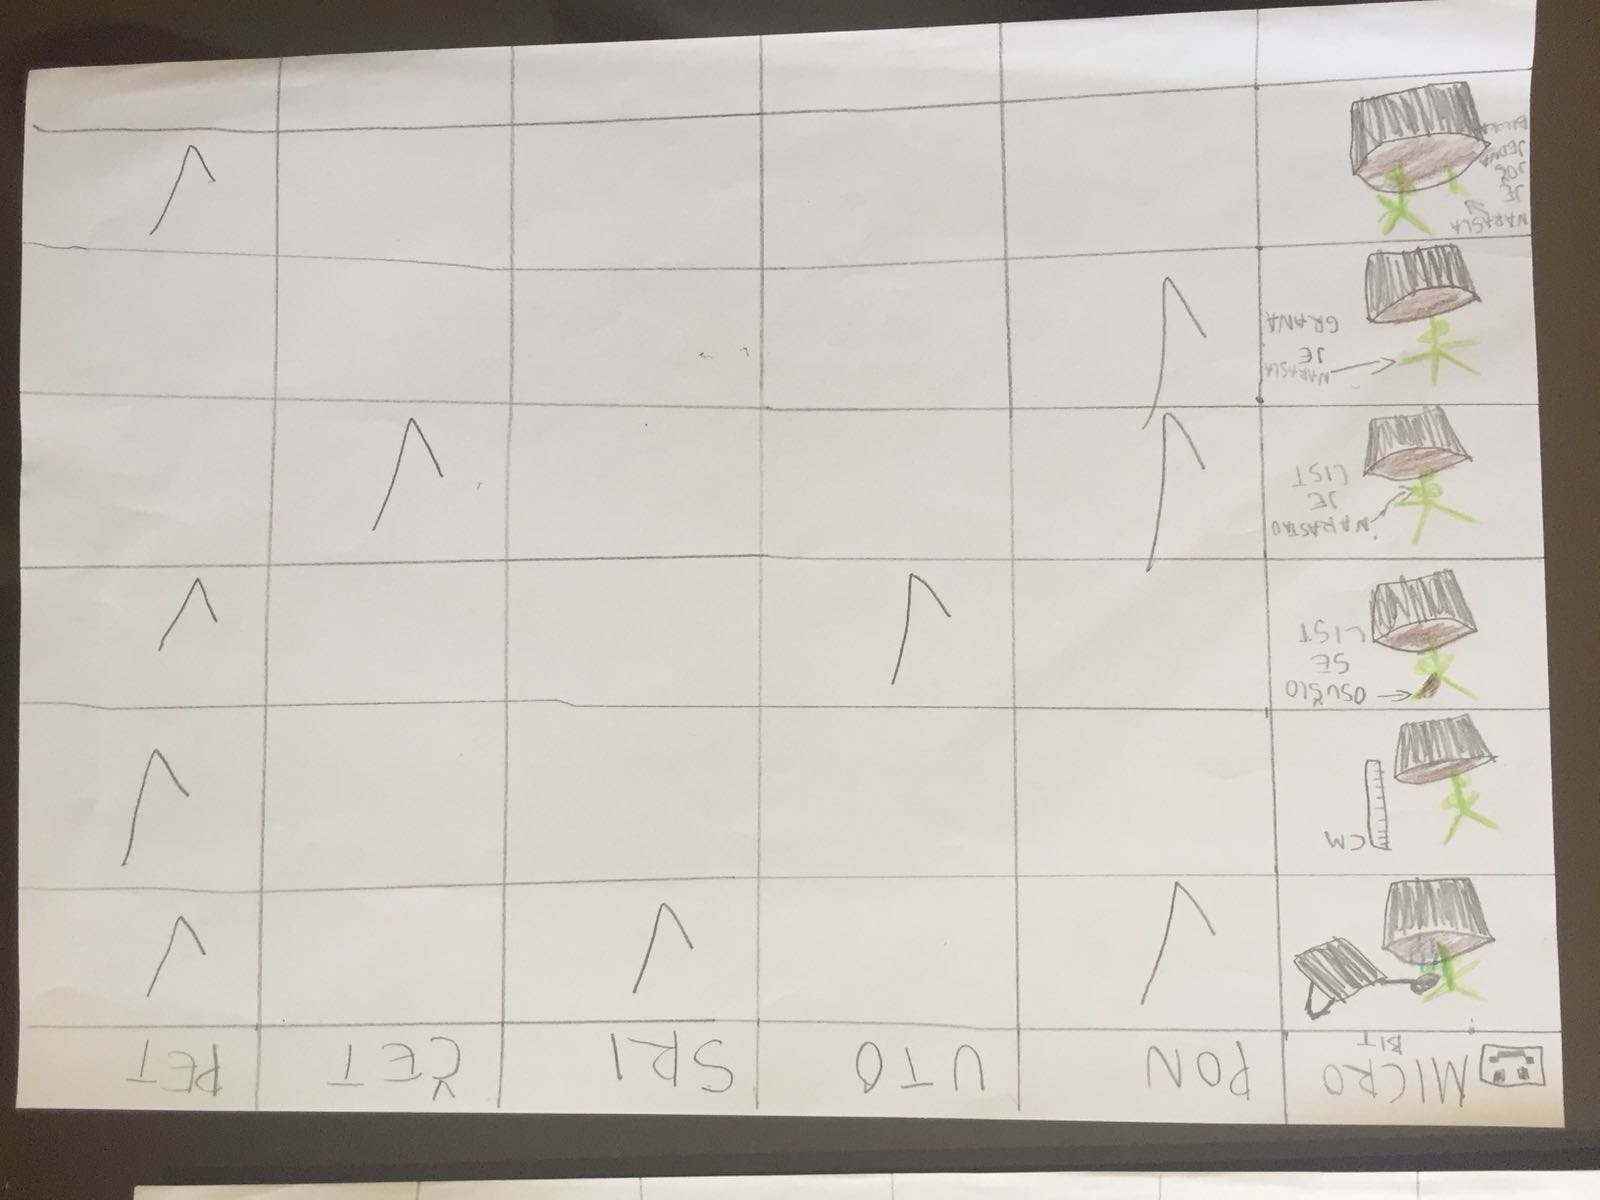 MICRO
BIT
PON
UTO
SRI
ČET
PET
CM
OSUŠIO
SE
LIST
NARASTAO
JE
LIST
NARASLA
JE
GRANA
NARASLA
JE
JOŠ
JEDNA